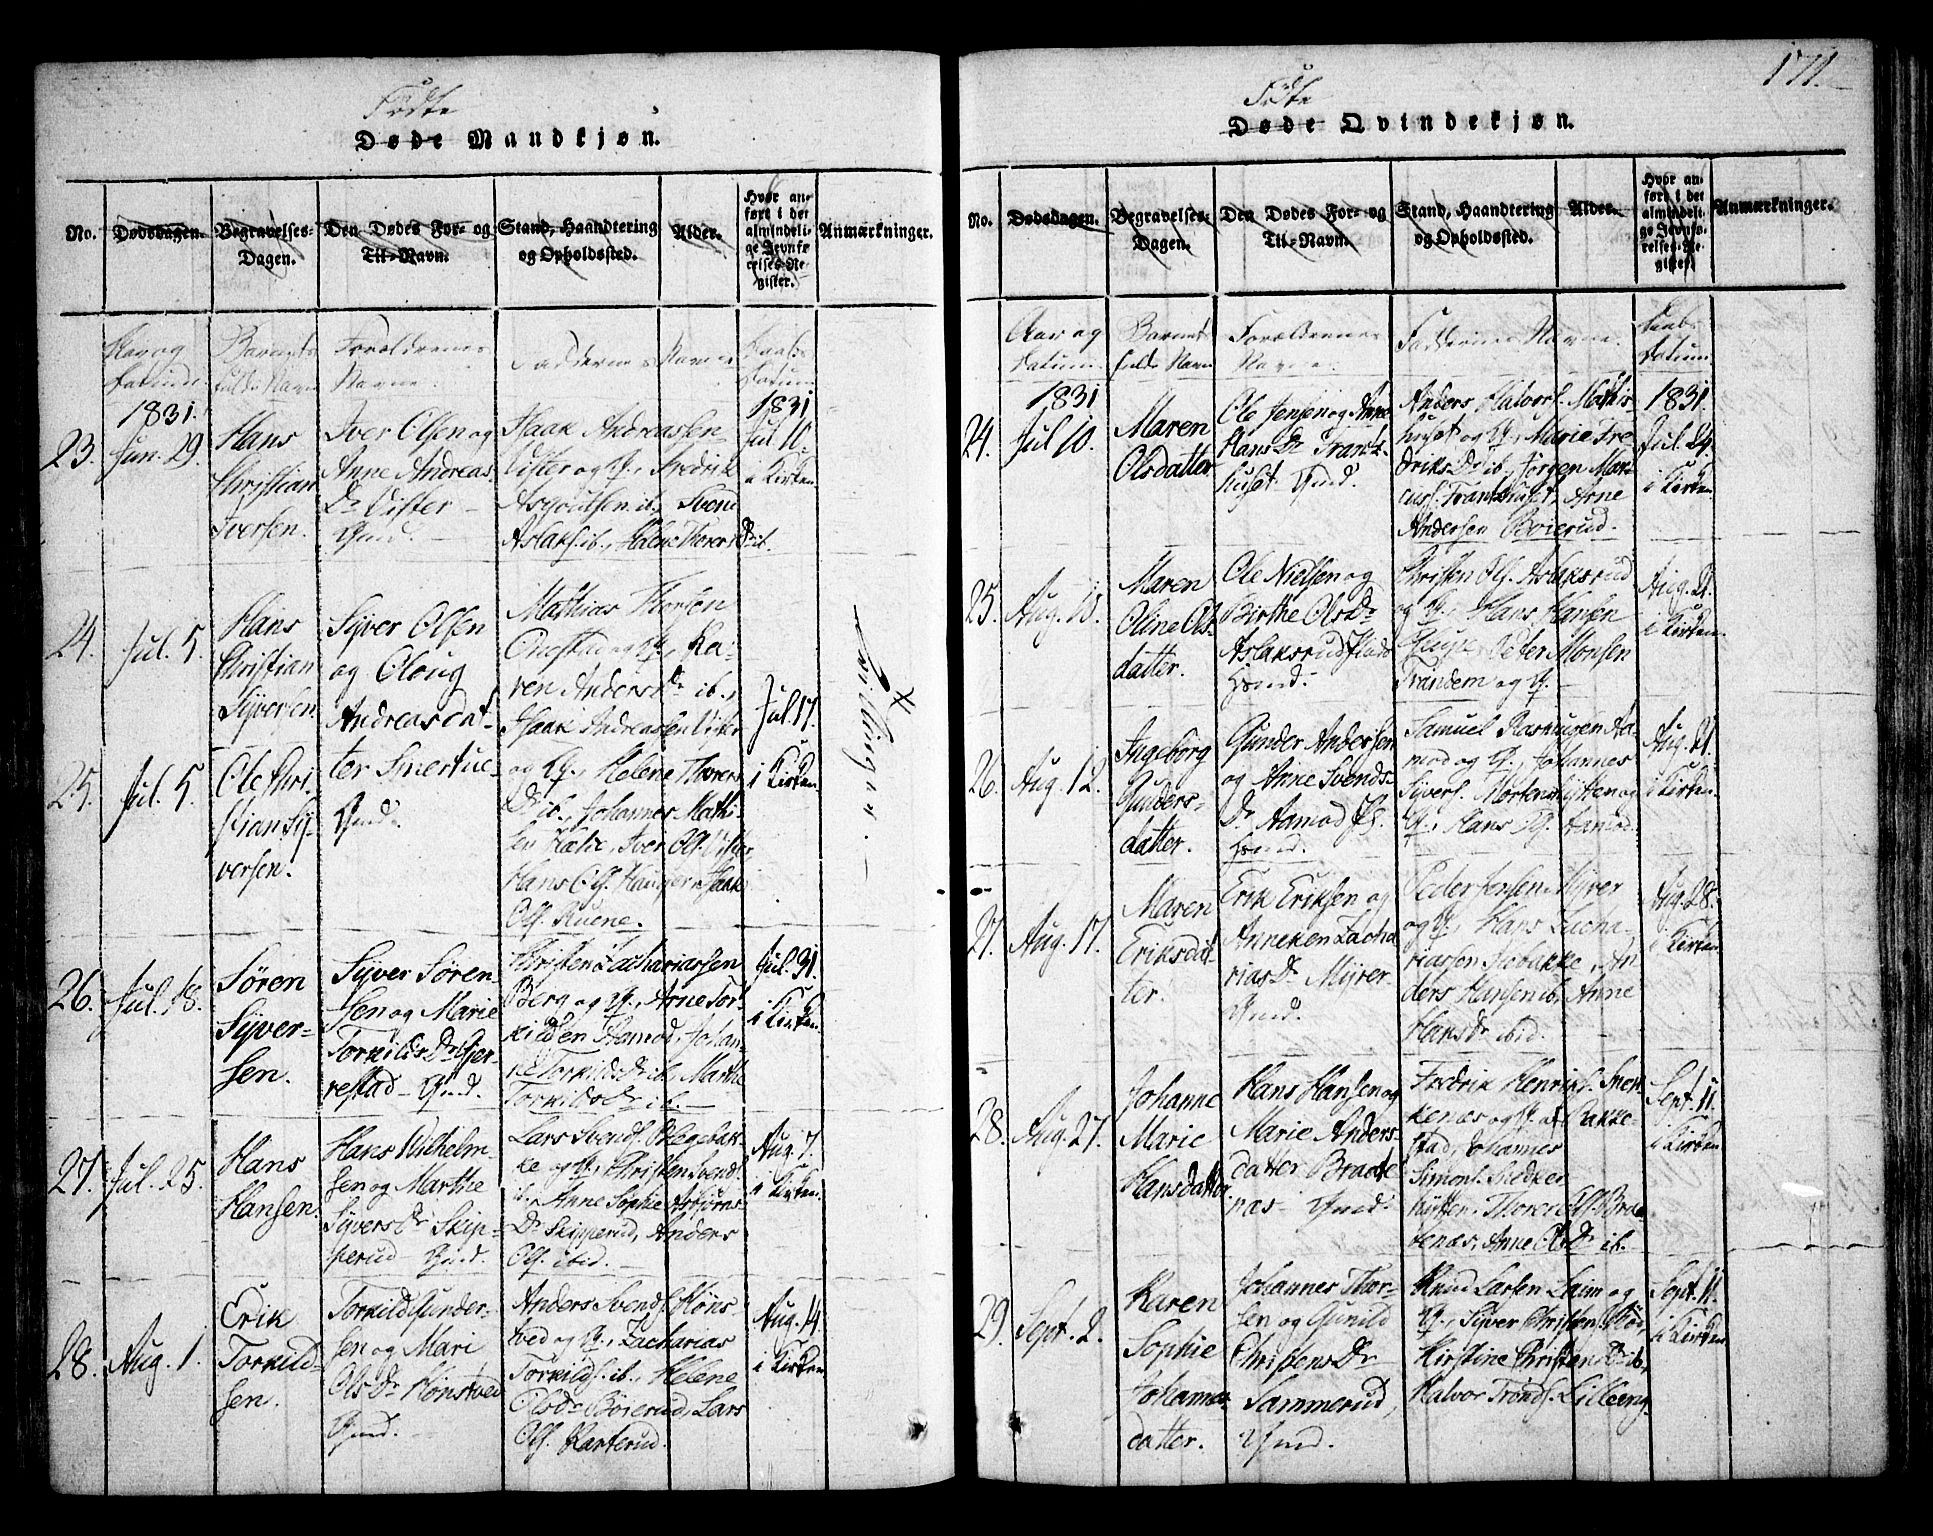 171.
Födte
Døde Mandkjøn.
No.
Dødsdagen.
Begravelses-
Dagen.
Den Dødes For- og
Til-Navn.
Stand, Haandtering
og Opholdssted.
Alder.
Hvor an-
ført i det
almindeli-
ge Jevnfø-
relses-Re-
gister.
Anmærkninger.
Aar og
Datum.
Barnets
fulde Navn
Forældrenes
Navne.
Faddernes Navne
Daabs
Datum
1831.
1831
23.
Jun. 29.
Hans
Christian
Iversen.
Iver Olsen og
Anne Andreas-
Dr Vister
Gmd.
Isaak Andreassen
Vister og H., Fredrik
Asgoutsen ib., Svend
Aslaks. ib., Helene Thorers Dr ib.
Jul. 10.
i Kirken
24.
Jul. 5.
Hans
Christian
Syversen.
Syver Olsen
og Oloug
Andreasdat-
ter Smertue-
Gmd.
Mathias Thorsen
og H., Ka-
ren Anders Dr ib.,
Isaak Andreassen Vister
og H., Helene Thorers
Dr ib., Johannes Mathi-
sen Hætre, Iver Ols. Vister
Hans Ols. Haugs. Isaak
Ols. Ruene.
Jul. 17.
i Kirken
25.
Jul. 5.
Ole Chri-
stian Sy-
versen.
Tvillinger.
26.
Jul. 18.
Sören
Syver-
sen.
Syver Sören-
sen og Marie
Torkilds Dr Gjer-
restad - Gmd.
Christen Zachariassen
Berg og H., Arne Tor-
kildsen Aamod, Johan-
ne Torkilds Dr ib., Marthe
Torkilds Dr ib. -
Jul. 31.
i Kirken
27.
Jul. 25.
Hans
Hansen.
Hans Wilhelm-
sen og Marthe
Syvers Dr Skip-
perud - Gmd.
Lars Svends. Blegebak-
ke og H., Christen Svends.
ib., Anne Sophie Asbjørns-
Dr Skipperud, Anders
Ols. ibid. -
Aug. 7.
i Kirken
28.
Aug. 1.
Erik
Torkild-
sen.
Torkild Gunder-
sen og Mari
Ols Dr Hönstved
Gmd.
Anders Svends. Höns-
tved og H., Zacharias
Torkilds. ib., Helene
Ols Dr Böierud, Lars
Ols. Karterud.
Aug. 14
i Kirken
Födte
Døde Qvindekjøn.
No.
Dødsdagen.
Begravelses-
Dagen.
Den Dødes For- og
Til-Navn.
Stand, Haandtering
og Opholdssted.
Alder.
Hvor an-
ført i det
almindeli-
ge Jevnfø-
relses-Re-
gister.
Anmærkninger.
Aar og
Datum.
Barnets
fulde Navn
Forældrenes
Navne.
Faddernes Navne.
Daabs
Datum
1831
1831.
24.
Jul. 10.
Maren
Olsdatter
Ole Jensen og Anne
Hans Dr Frantz-
huset - Gmd.
Anders Halvors. Mathis-
huset og H., Marie Fre-
driks Dr ib., Jørgen Mar-
cus. Frantzhuset, Arne
Andersen Böierud.
Jul. 24.
i Kirken
25.
Aug. 10.
Maren
Oline Ols-
datter.
Ole Nielsen og
Birthe Ols Dr
Aslaksrud Plads
Hsmd.
Christen Ols. Aslaksrud
og H., Hans Hansen
Peter Monsen
Trandem og H. -
Aug. 21.
i Kirken
26.
Aug. 12.
Ingeborg
Gunders-
datter.
Gunder Andersen
og Anne Svends-
Dr Aamod Pl.
Hsmd.
Samuel Rasmusen Aa-
mod og H., Johannes
Syvers. Mortenshytten og
H., Hans Aamod.
Aug. 21.
i Kirken
27.
Aug. 17.
Maren
Eriksdat-
ter.
Erik Eriksen og
Anneken Zacha-
rias Dr Myrer
Gmd.
Peder Jonsen Myrer
og H., Hans Zacha-
riassen Isebakke, An-
ders Hansen ib., Anne
Hans Dr ibid.
Aug. 28.
i Kirken
28.
Aug. 27.
Johanne
Marie
Hansdatter
Hans Hansen og
Marie Anders-
datter Braate-
næs - Gmd.
Fredrik Henriks. Smer-
kenæs og H. af Bakke-
stad, Johannes
Simons. Snedker
hytten, Thore Ols. Braa-
tenæs, Anne Ols Dr ib.
Sept. 11.
i Kirken
29.
Sept. 2.
Karen
Sophie
Johannes-
datter.
Johannes Thor-
sen og Gunild
Christens Dr
Sammerud,
Gmd.
Knud Larsen Laim og
H., Syver Christensen
Kirstine Christens Dr ib.,
Halvor Tronds. Lilleeng.
Sept. 11.
i Kirken